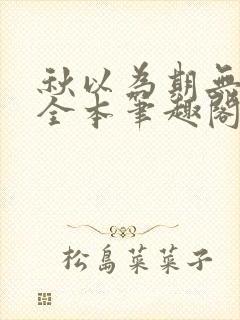 秋以為期無
全本筆趣閣
松島菜菜子